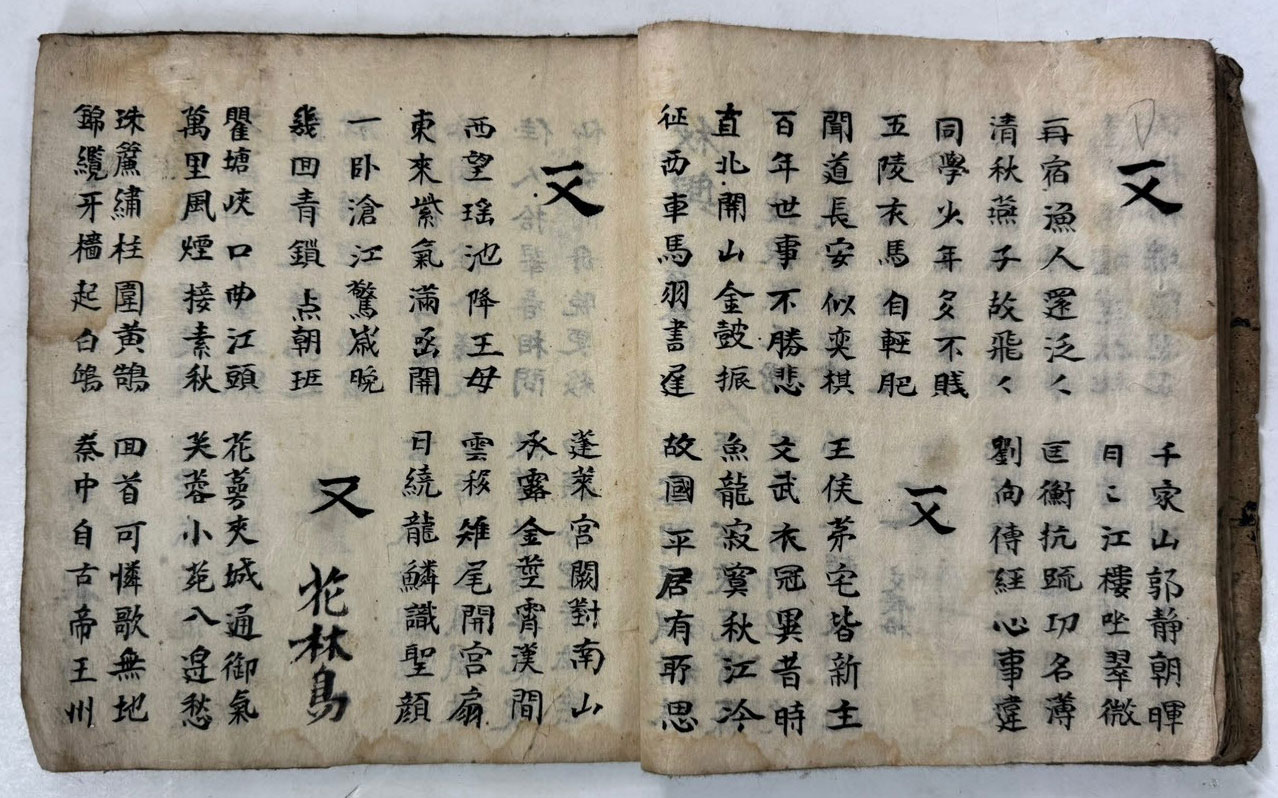 又
千家山郭静朝暉
日々江樓坐翠微
再宿漁人還泛々
清秋燕子故飛々
匡衡抗疏功名薄
劉向傳經心事違
同學少年多不賤
五陵衣馬自輕肥
又
聞道長安似奕棋
百年世事不勝悲
王侯茅宅皆新主
文武衣冠異昔時
直北開山金鼓振
征西車馬羽書遲
魚龍寂寞秋江冷
故國平居有所思
又
蓬萊宮闕對南山
承露金莖霄漢間
西望瑤池降王母
東來紫氣滿函開
雲移雉尾開宮扇
日繞龍鱗識聖顔
一卧滄江驚歲晚
幾回青鎖点朝班
又
花林鳥
瞿塘峽口曲江頭
萬里風煙接素秋
花萼夾城通御氣
芙蓉小苑入邊愁
珠簾繡柱圍黃鵠
錦纜牙檣起白鷗
回首可憐歌無地
秦中自古帝王州